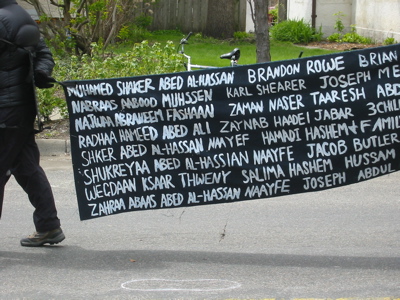 MUHAMED SHAKER ABED AL-HASSAN BRANDON ROWE BRIAN
NABRAAS AABOOD MUHSSEN KARL SHEARER JOSEPH ME
NAJUAA ABRANEEM FASHAAN ZAMAN NASER TAARESH ABD
RADHAA HAMEED ABED ALI ZAYNAB HAADEI JABAR 3 CHIL
SHKER ABED AL-HASSAN NAAYEF HAMADI HASHEM & FAMIL
SHUKREYAA ABED AL-HASSIAN NAAYFE JACOB BUTLER
WEGDAAN KSAAR THWENY SALIMA HASHEM HUSSAM
ZAHRAA ABAAS ABED AL-HASSAN NAAYFE JOSEPH ABDUL